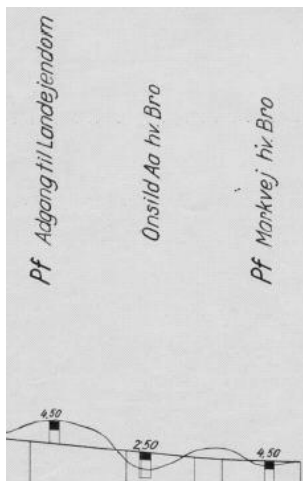 Pf Adgang til Landejendom
Onsild Aa hv. Bro
Pf Markvej hv. Bro
4,50
2,50
4,50